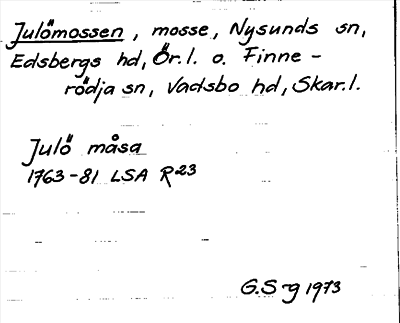 Julömossen, mosse, Nysunds sn,
Edsbergs hd, Ör.l. o. Finne-
rödja sn, Vadsbo hd, Skar.l.
Julö måsa
1763-81 LSA R23
G.S-g 1973